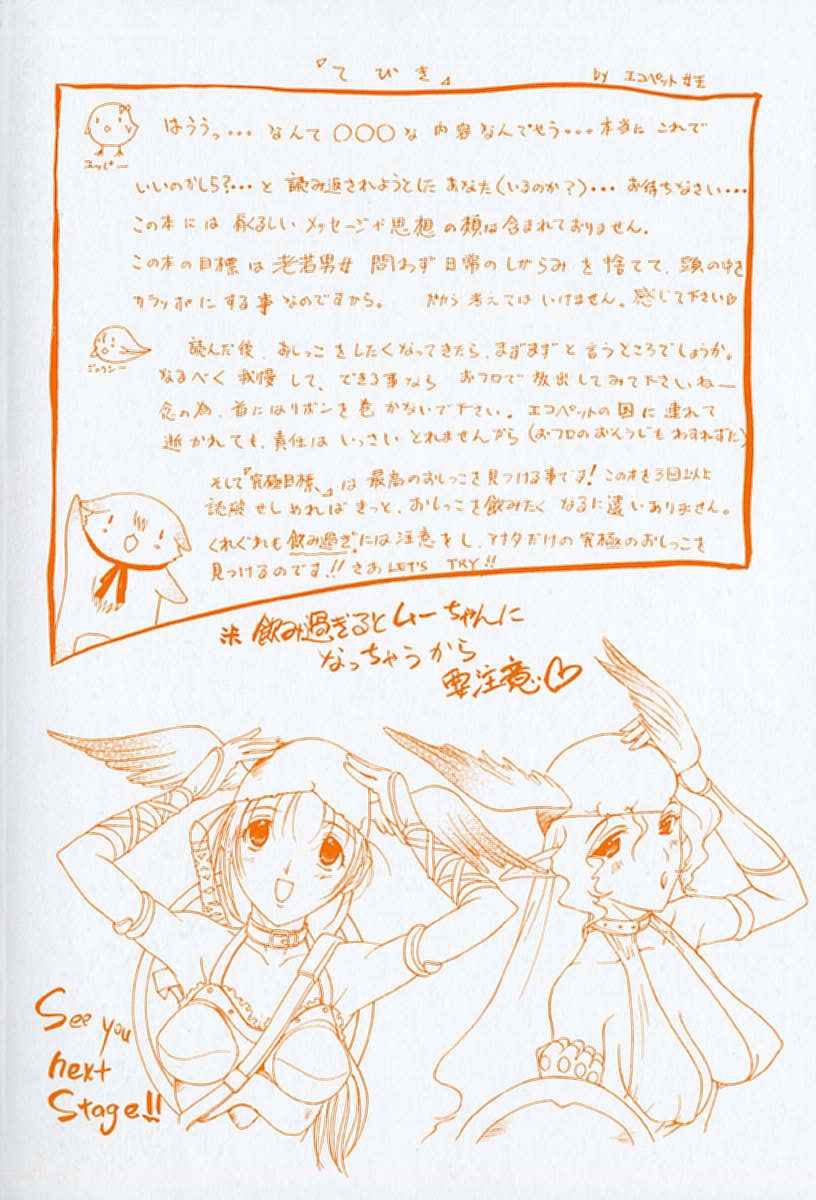 『てびき』 by エコペット女王
はううっ・・・なんて〇〇〇な内容なんでせう・・・本当にこれで
いいのかしら?・・・と読み返されようとしたあなた(いるのか?)・・・お待ちなさい・・・
この本には しいメッセージや思想の類は含まれておりません。
この本の目標は老若男女問わず日常のしがらみを捨てて、頭の中を
カラッポにする事なのですから。 だから考えてはいけません。感じて下さい♡
読んだ後、おしっこをしたくなってきたら、まずまずと言うところでしょうか。
なるべく我慢して、できる事ならおフロで放出してみて下さいねー
念の為、首にはリボンを巻かないで下さい。エコペットの国に連れて
逝かれても、責任はいっさいとれませんから(おフロのおそうじもわすれずた)
そして『究極目標』は最高のおしっこを見つける事です!この本を3回以上
読破せしめればきっと、おしっこを飲みたくなるに違いありません。
くれぐれも飲み過ぎには注意をし、アナタだけの究極のおしっこを
見つけるのです!!さあLET'S TRY!!
※飲み過ぎるとムーちゃんに
なっちゃうから
要注意♡
See you
next
Stage!!